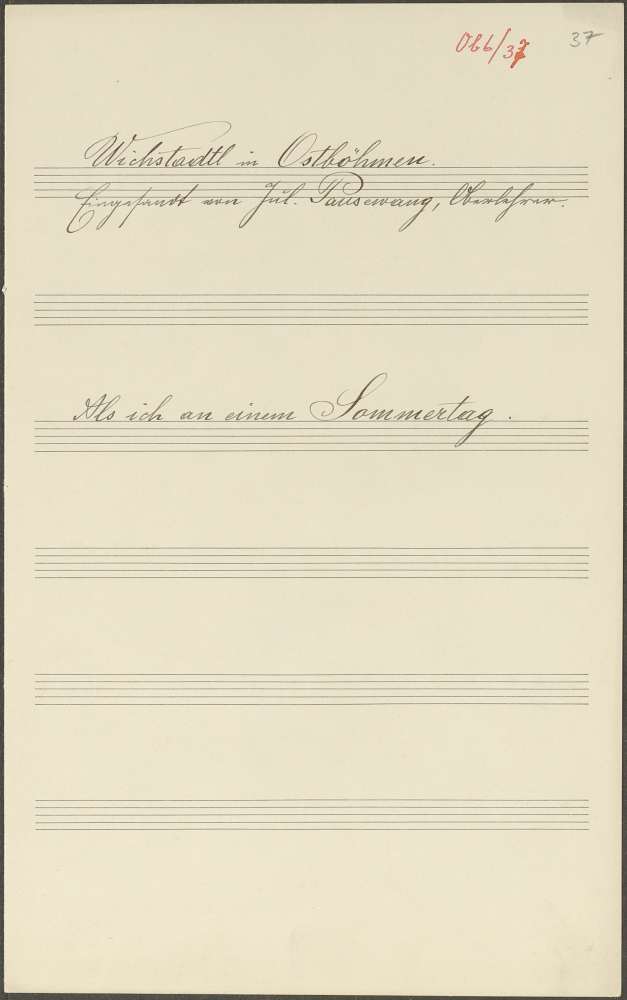 Obb/37 37
Wichstadtl in Ostböhmen.
Eingesandt von Jul. Pausewang, Oberlehrer.
Als ich an einem Sommertag.